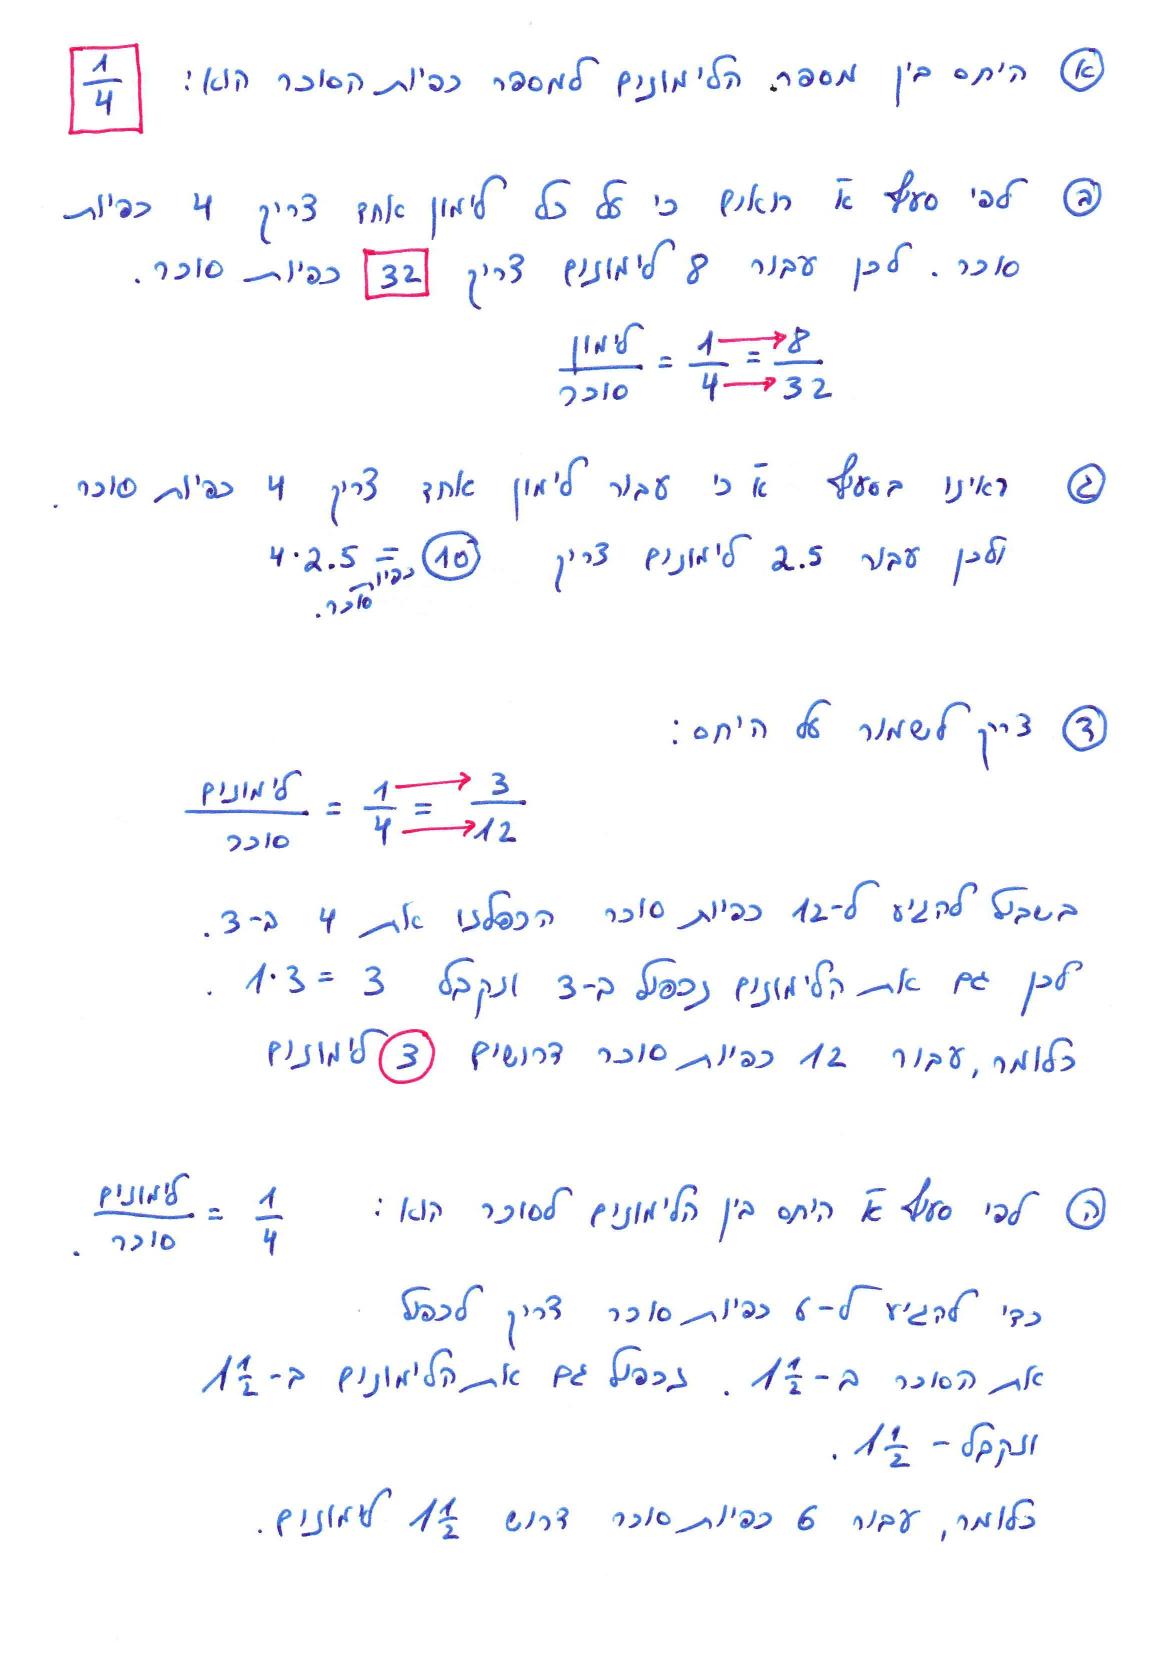 א היחס בין מספר הלימונים למספר כפיות הסוכר הוא: 1/4
ב לפי סעיף א רואים כי על כל לימון אחד צריך 4 כפיות
סוכר. לכן עבור 8 לימונים צריך 32 כפיות סוכר.
לימון/סוכר = 1/4 = 8/32
ג ראינו בסעיף א כי עבור לימון אחד צריך 4 כפיות סוכר.
ולכן עבור 2.5 לימונים צריך 4·2.5 = 10
כפיות
סוכר.
ד צריך לשמור על היחס:
לימונים/סוכר = 1/4 = 3/12
בשביל להגיע ל-12 כפיות סוכר הכפלנו את 4 ב-3.
לכן גם את הלימונים נכפיל ב-3 ונקבל 1·3 = 3.
כלומר, עבור 12 כפיות סוכר דרושים 3 לימונים
ה לפי סעיף א היחס בין הלימונים לסוכר הוא: לימונים/סוכר = 1/4.
כדי להגיע ל-6 כפיות סוכר צריך לכפול
את הסוכר ב-1 1/2. נכפיל גם את הלימונים ב-1 1/2
ונקבל - 1 1/2.
כלומר, עבור 6 כפיות סוכר דרוש 1 1/2 לימונים.